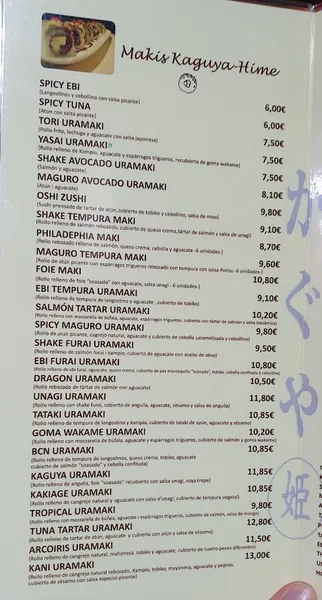 Makis Kaguya-Hime
SPICY EBI
(Langostinos y cebollino con salsa picante)
6,00€
SPICY TUNA
(Atún con salsa picante)
6,00€
TORI URAMAKI
(Rollo frito, lechuga y aguacate con salsa japonesa)
7,50€
YASAI URAMAKI
(Rollo relleno de Kampio, aguacate y espárragos trigueros, recubierto de goma wakame)
7,50€
SHAKE AVOCADO URAMAKI
(Salmón y aguacate)
7,50€
MAGURO AVOCADO URAMAKI
(Atún i aguacate)
8,10€
OSHI ZUSHI
(Sushi prensado de tártar de atún, cubierto de tobiko y cebollino, salsa de miso)
9,80€
SHAKE TEMPURA MAKI
(Rollo relleno de salmón rebozado, cubierto de queso crema, tártar de salmón y salsa de unagi)
9,10€
PHILADEPHIA MAKI
(Rollo rebozado relleno de salmón, queso crema, cebolla y aguacate -6 unidades-)
8,70€
MAGURO TEMPURA MAKI
(Rollo de atún picante con espárragos trigueros rebozado con tempura con salsa Ponzu -6 unidades-)
9,60€
FOIE MAKI
(Rollo relleno de foie "soasado" con aguacate, salsa unagi - 6 unidades-)
10,80€
EBI TEMPURA URAMAKI
(Rollo relleno de tempura de langostino y aguacate, cubierto de tobiko)
9,10€
SALMÓN TARTAR URAMAKI
(Rollo relleno con mozzarella de búfala, aguacate, espárragos trigueros, cubierto con tártar de salmón y salsa balsámica)
10,20€
SPICY MAGURO URAMAKI
(Rollo de atún picante, cagrejo natural, aguacate y cubierto de cebolla caramelizada y cebollino)
9,80€
SHAKE FURAI URAMAKI
(Rollo relleno de salmón furai i kampio, cubierto de aguacate con aceite de oliva)
9,50€
EBI FURAI URAMAKI
(Rollo relleno de ebi furai, aguacate, queso crema, cubierto de paz marrequilla "soasado", tobiko, cebolla confitada y cebollino)
10,80€
DRAGON URAMAKI
(Rollo rebozado de tártar de salmón con aguacate)
10,50€
UNAGI URAMAKI
(Rollo relleno con shake furai, cubierto de anguila, aguacate, sésamo y salsa de anguila)
11,80€
TATAKI URAMAKI
(Rollo relleno de tempura de langostino y kampo, cubierto de tataki de atún, aguacate y sésamo)
10,85€
GOMA WAKAME URAMAKI
(Rollo relleno con mozzarella de búfala, aguacate y espárragos trigueros, cubierto de salmón y goma wakame)
10,20€
BCN URAMAKI
(Rollo relleno de tempura de langostinos, queso crema, tobiko, aguacate
cubierto de salmón "soasado" y cebolla confitada)
10,85€
KAGUYA URAMAKI
(Rollo relleno de anguila, foie "soasado" recubierto con salsa unagi, soya crepe)
11,85€
KAKIAGE URAMAKI
(Rollo relleno de cangrejo natural y aguacate con salsa d'unagi, cubierto de tempura vegetal)
10,85€
TROPICAL URAMAKI
(Rollo relleno con mozzarella de bufala, aguacate i espárragos trigueros, cubierto de salmón, salsa de mango)
9,80€
TUNA TARTAR URAMAKI
(Rollo relleno de tartar de atún, aguacate y cubierto con atún y salsa de sésamo)
12,80€
ARCOIRIS URAMAKI
(Rollo relleno de cangrejo natural, mahonesa, tobiko y aguacate, cubierto de cuatro peces diferentes)
11,50€
KANI URAMAKI
(Rollo relleno de cangrejo natural rebozado, Kampio, tobiko, mayonesa, aguacate y pepino.
cubierto de sésamo con salsa especial picante)
13,00€
かぐや
姫